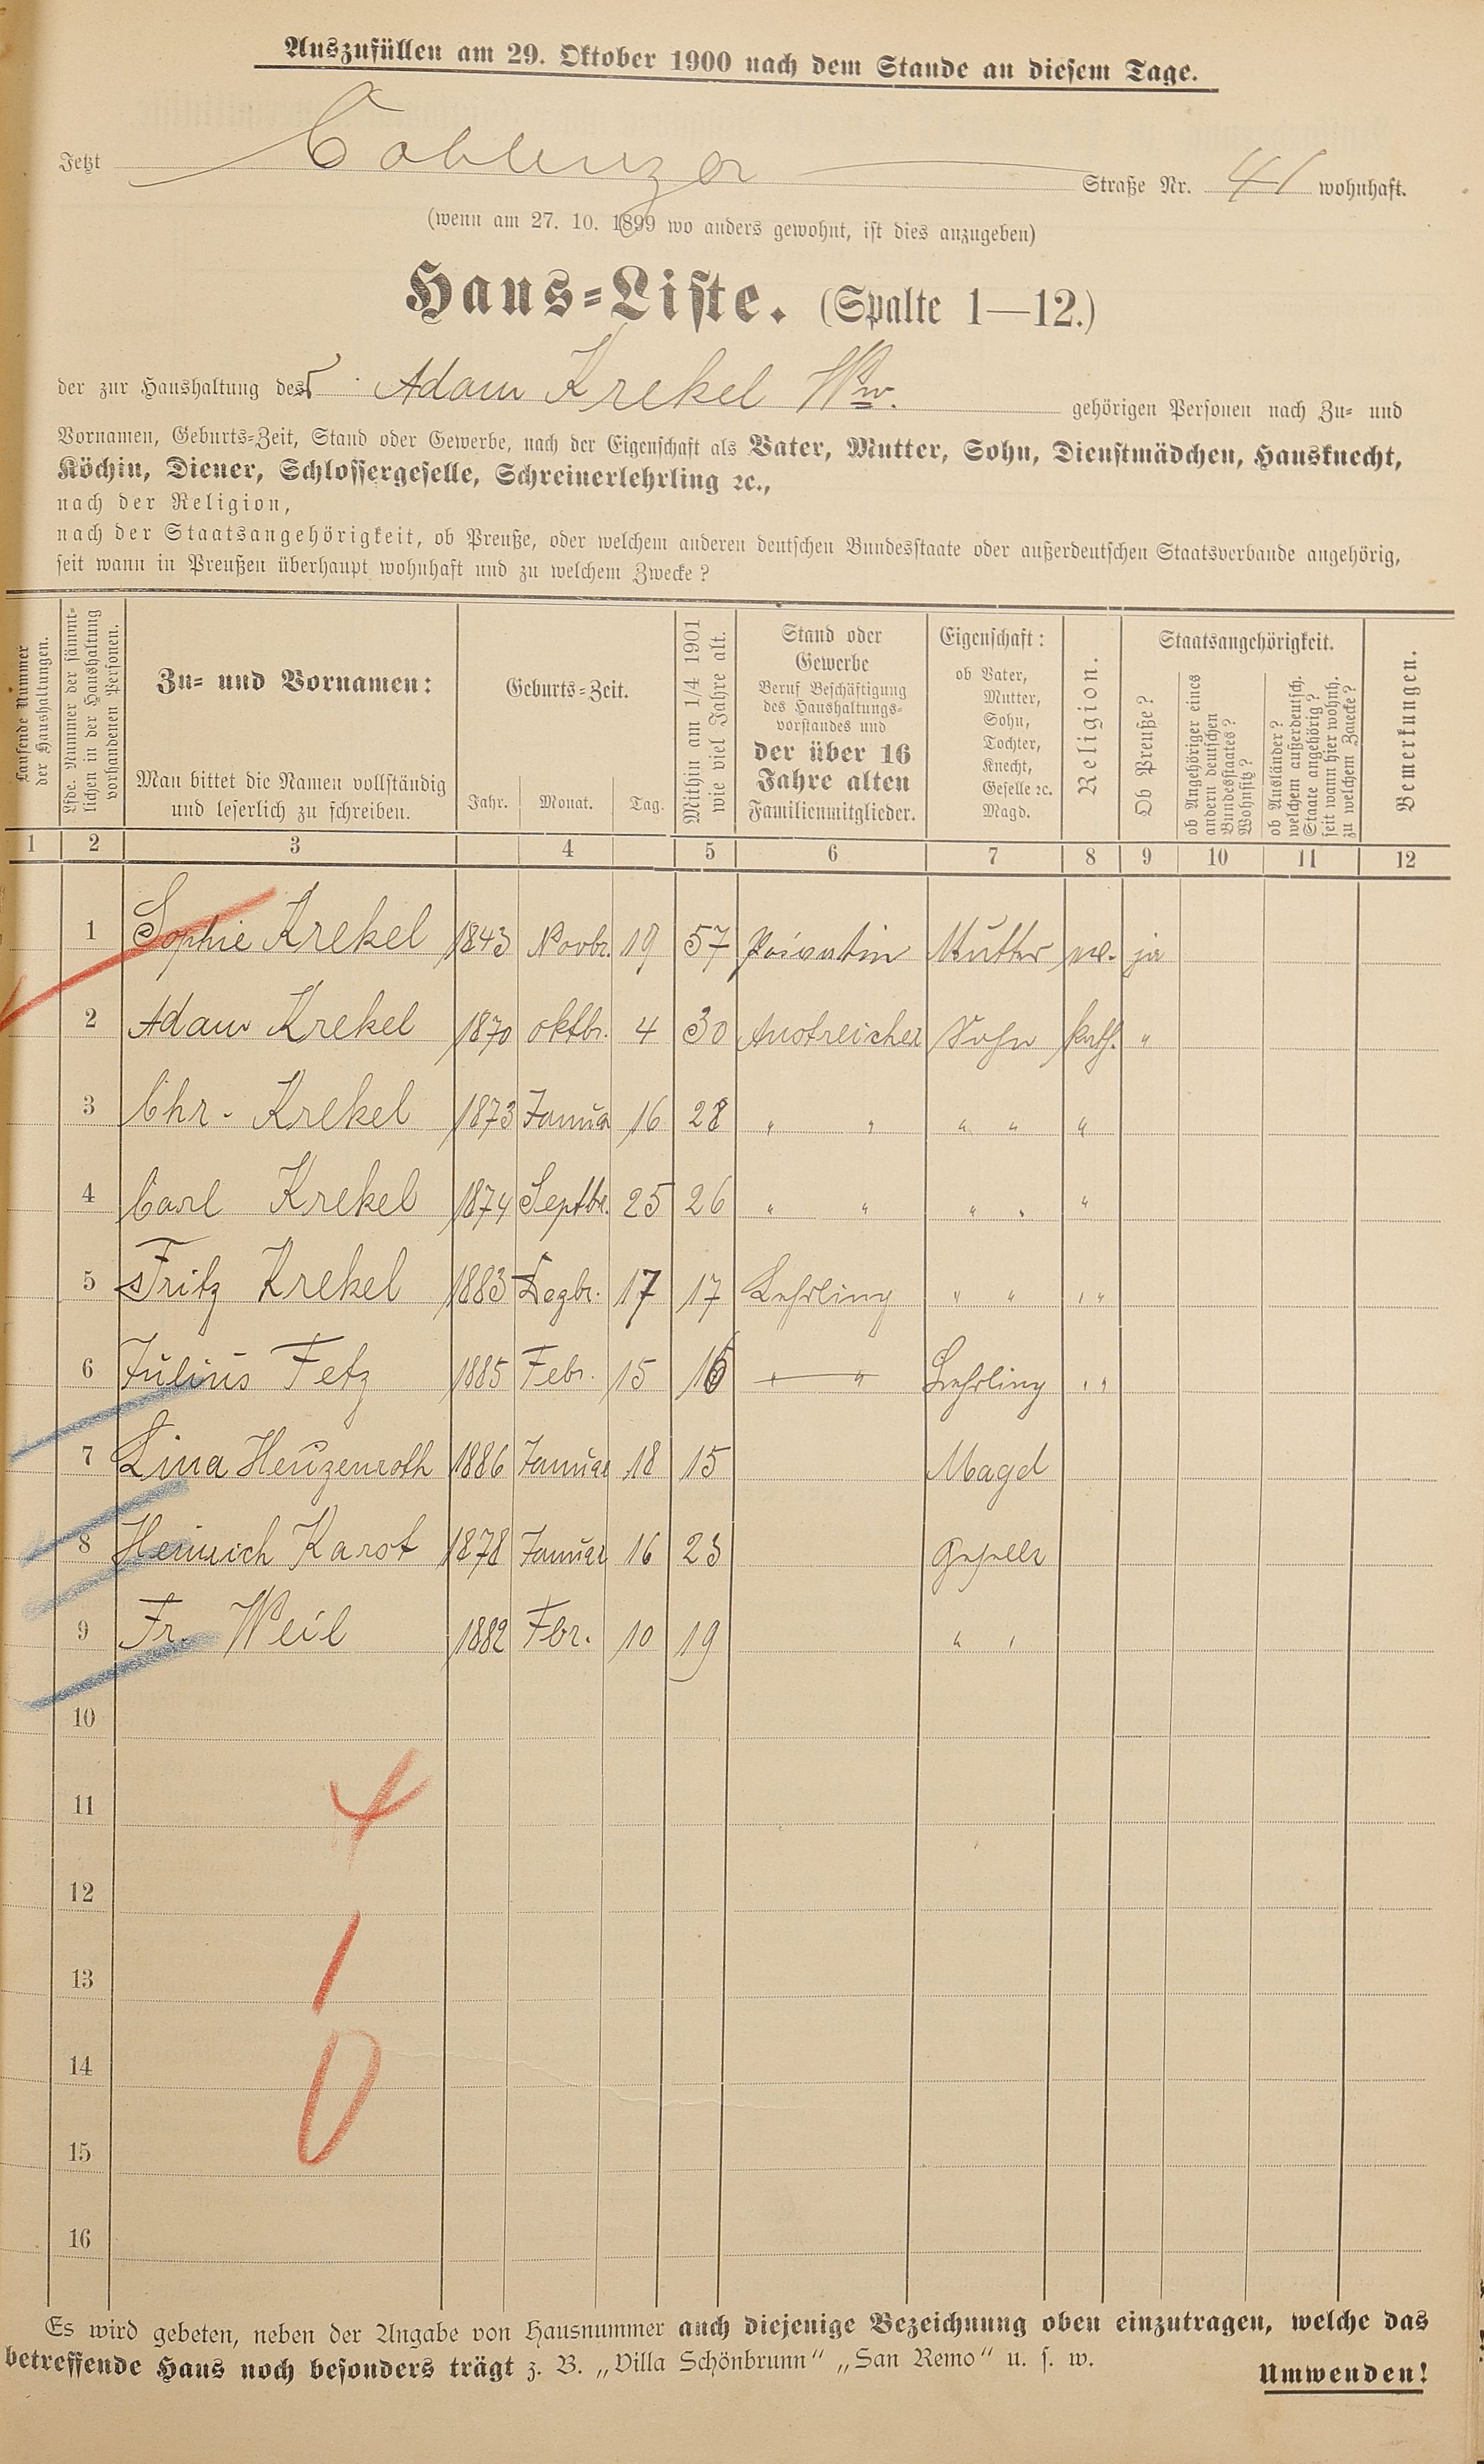 Auszufüllen am 29. Oktober 1900 nach dem Stande an diesem Tage.
Jetzt Coblenzer Straße Nr. 41 wohnhaft.
(wenn am 27. 10. 1899 wo anders gewohnt, ist dies anzugeben)
Haus-Liste. (Spalte 1—12.)
der zur Haushaltung des r Adam Krekel Ww. gehörigen Personen nach Zu- und
Vornamen, Geburts-Zeit, Stand oder Gewerbe, nach der Eigenschaft als Vater, Mutter, Sohn, Dienstmädchen, Hausknecht,
Köchin, Diener, Schlossergeselle, Schreinerlehrling ꝛc.,
nach der Religion,
nach der Staatsangehörigkeit, ob Preuße, oder welchem anderen deutschen Bundesstaate oder außerdeutschen Staatsverbande angehörig,
seit wann in Preußen überhaupt wohnhaft und zu welchem Zwecke?
Laufende Nummer
der Haushaltungen.
Lfde. Nummer der sämmt-
lichen in der Haushaltung
vorhandenen Personen.
Zu- und Vornamen:
Man bittet die Namen vollständig
und leserlich zu schreiben.
Geburts-Zeit.
Jahr. Monat. Tag.
Mithin am 1/4 1901
wie viel Jahre alt.
Stand oder
Gewerbe
Beruf Beschäftigung
des Haushaltungs-
vorstandes und
der über 16
Jahre alten
Familienmitglieder.
Eigenschaft:
ob Vater,
Mutter,
Sohn,
Tochter,
Knecht,
Geselle ꝛc.
Magd.
Religion.
Staatsangehörigkeit.
Ob Preuße?
ob Angehöriger eines
andern deutschen
Bundesstaates?
Wohnsitz?
ob Ausländer?
welchem außerdeutsch.
Staate angehörig?
seit wann hier wohnh.
zu welchem Zwecke?
Bemerkungen.
1 2 3 4 5 6 7 8 9 10 11 12
1 Sophie Krekel 1843 Novbr. 19 57 Mutter ja
2 Adam Krekel 1870 oktbr. 4 30 Anstreicher Sohn kath. "
3 Chr. Krekel 1873 Janua 16 28 " " " " "
4 Carl Krekel 1874 Septbr. 25 26 " " " " "
5 Fritz Krekel 1883 Dezbr. 17 17 Lehrling " " " "
6 Julius Fetz 1885 Febr. 15 16 " " Lehrling " "
7 Lina Heuzenroth 1886 Januar 18 15 Magd
8 Heinrich Karst 1878 Januar 16 23 Geselle
9 Fr. Weil 1882 Fbr. 10 19 " "
10
11
4
12
13
1
14
0
15
16
Es wird gebeten, neben der Angabe von Hausnummer auch diejenige Bezeichnung oben einzutragen, welche das
betreffende Haus noch besonders trägt z. B. „Villa Schönbrunn“ „San Remo“ u. s. w.
Umwenden!